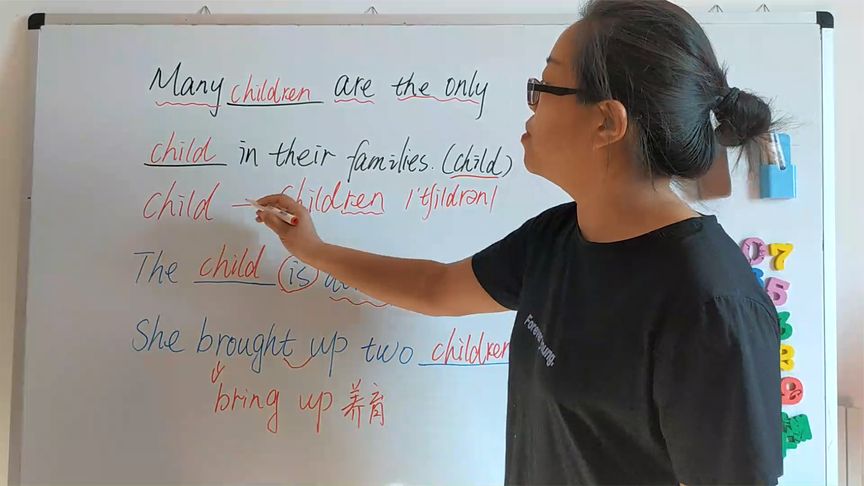 Many children are the only
child in their families. (child)
child — children /ˈtʃildrən/
The child is
She brought up two children
bring up 养育
Forever young.
0 7
5
8
9